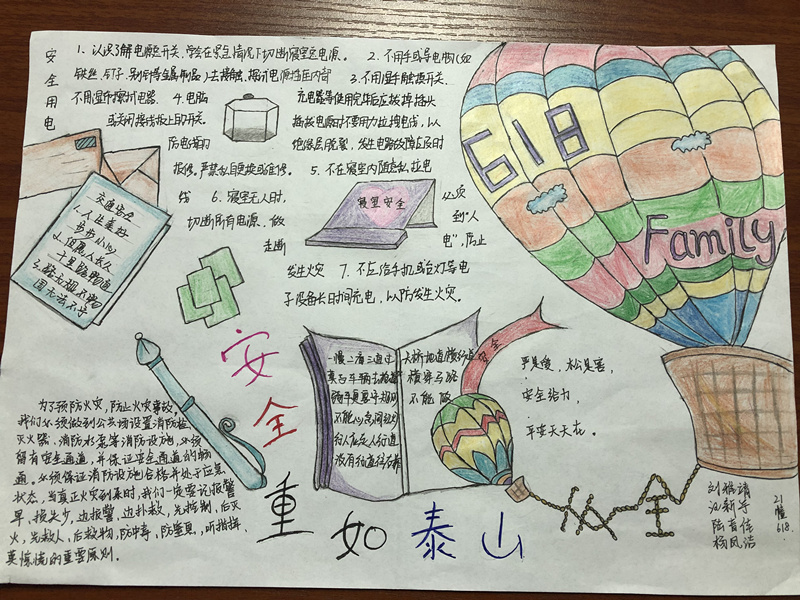 安全用电
1、认识了解电源总开关,学会在紧急情况下切断寝室总电源。 2、不用手或导电物(如
铁丝、钉子、别针等金属制品)去接触、探试电源插座内部 3、不用湿手触摸开关。
不用湿布擦拭电器. 4、电脑
充电器等使用完毕后应拔掉插头
或关闭接线板上的开关.
插拔电源时不要用力拉拽电线,以
防电线的
绝缘层脱裂、发生电器故障应及时
报修,严禁私自更换或维修. 5、不在寝室内随意私拉电
线 6、寝室无人时,
寝室安全
必须
切断所有电源、做
到“人
走断
电”,防止
发生火灾 7、不应给手机或台灯等电
子设备长时间充电,以防发生火灾。
618
Family
交通安全
1、人生美好
步步小心
2、但愿人长久
千里路畅通
安全重如泰山
一慢二看三通过
不能
安全
严是爱,松是害,
安全给力,
平安天天在。
为了预防火灾,防止火灾事故,
我们必须做到公共场设置消防栓、
灭火器、消防水泵等消防设施,必须
留有安全通道,并保证安全通道的畅
通,必须保证消防设施合格并处于应急
状态,当真正火灾到来时,我们一定要记报警
早,损失少,边报警,边扑救,先控制,后灭
火,先救人,后救物,防中毒,防窒息,听指挥,
莫惊慌的重要原则.
安全
21
幢
618.